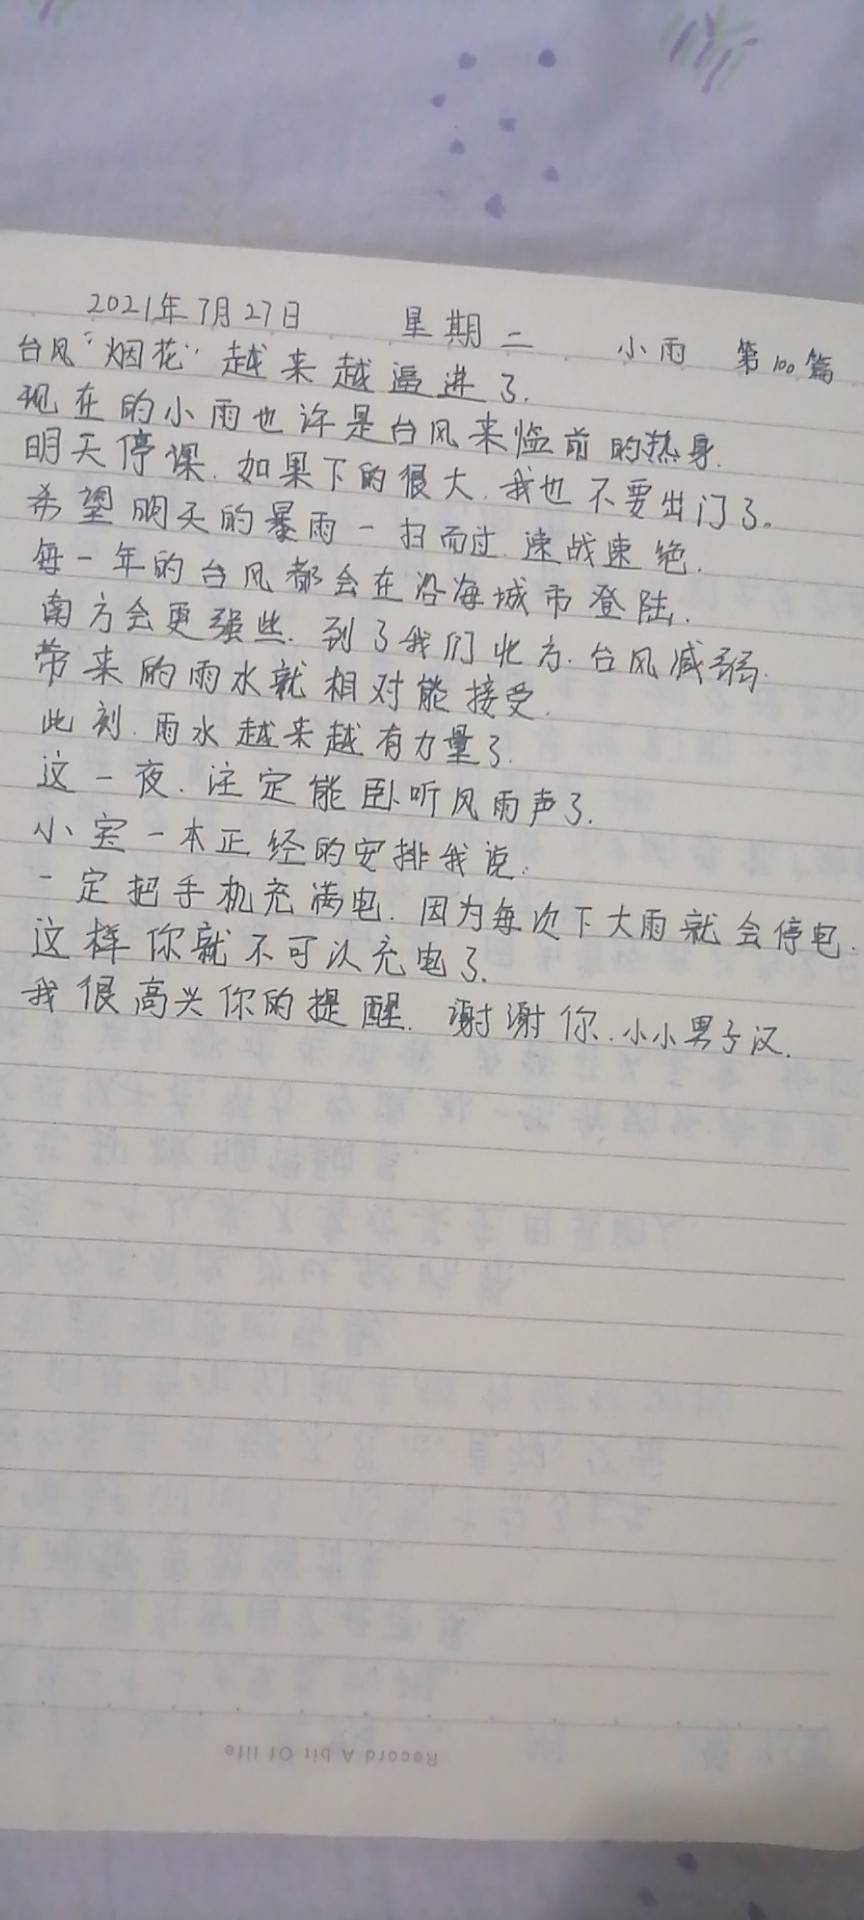 2021年7月27日 星期二 小雨 第100篇
台风“烟花”越来越逼进了.
现在的小雨也许是台风来临前的热身.
明天停课.如果下的很大.我也不要出门了。
希望明天的暴雨一扫而过.速战速绝.
每一年的台风都会在沿海城市登陆.
南方会更强些.到了我们北方.台风减弱.
带来的雨水就相对能接受.
此刻.雨水越来越有力量了.
这一夜.注定能卧听风雨声了.
小宝一本正经的安排我说:
一定把手机充满电.因为每次下大雨就会停电.
这样你就不可以充电了.
我很高兴你的提醒.谢谢你.小小男子汉.
Record A bit Of life